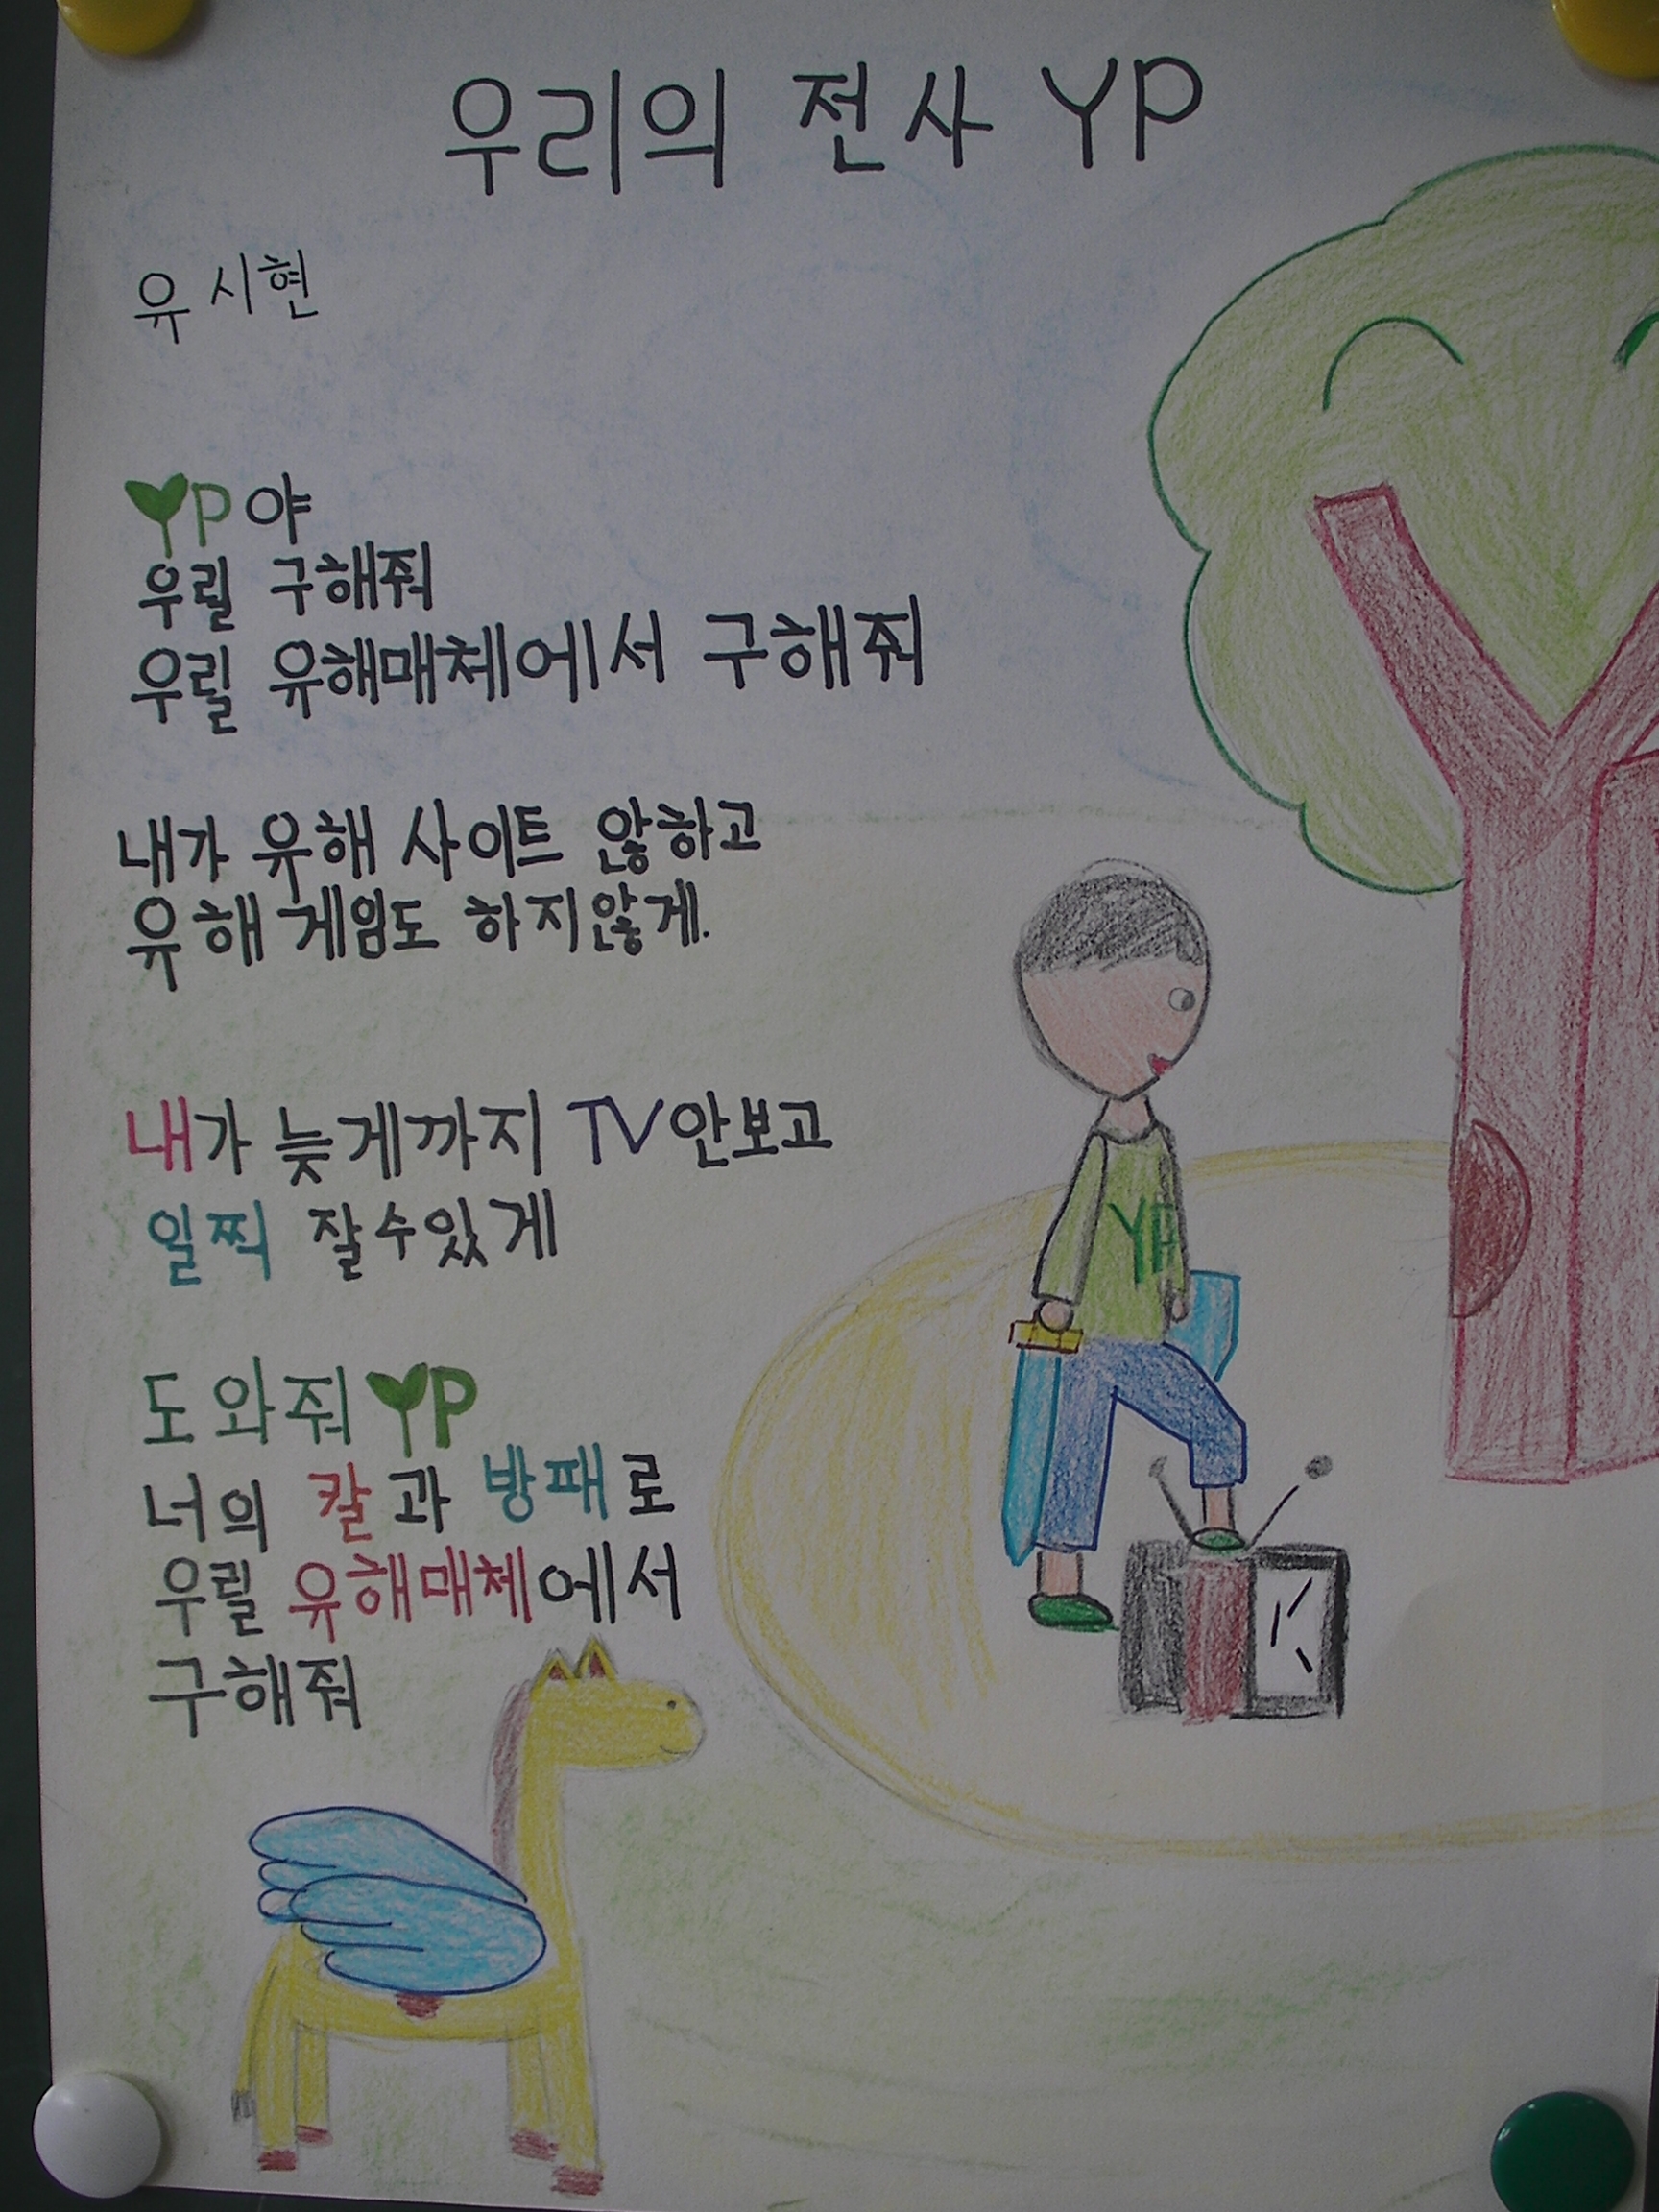 우리의 전사 YP
유시현
YP야
우릴 구해줘
우릴 유해매체에서 구해줘
내가 유해 사이트 않하고
유해게임도 하지않게.
내가 늦게까지 TV안보고
일찍 잘수있게
도와줘 YP
너의 칼과 방패로
우릴 유해매체에서
구해줘
YP